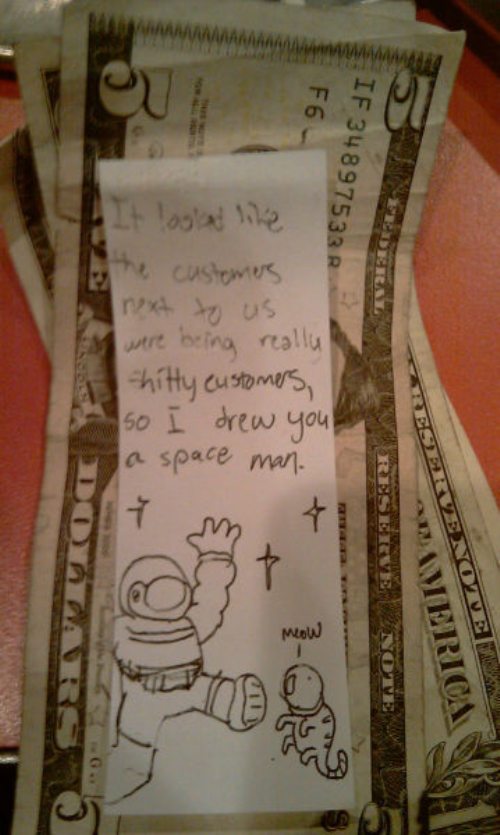 5
5
IF34897533B
F6
FEDERAL
RESERVE
NOTE
It looked like
the customers
next to us
were being really
shitty customers,
so I drew you
a space man.
meow
DOLLARS
RESERVE NOTE
AMERICA
5